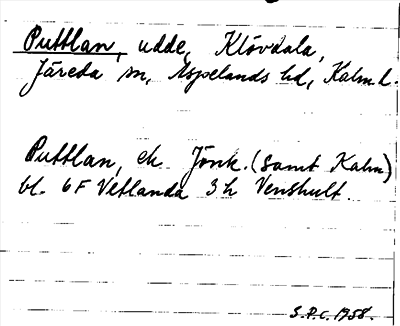 Puttlan, udde, Klövdala,
Järeda sn, Aspelands hd, Kalm. l.
Puttlan, ek. Jönk. (samt Kalm)
bl. 6F Vetlanda 3h Venshult.
S.P.C. 1958.